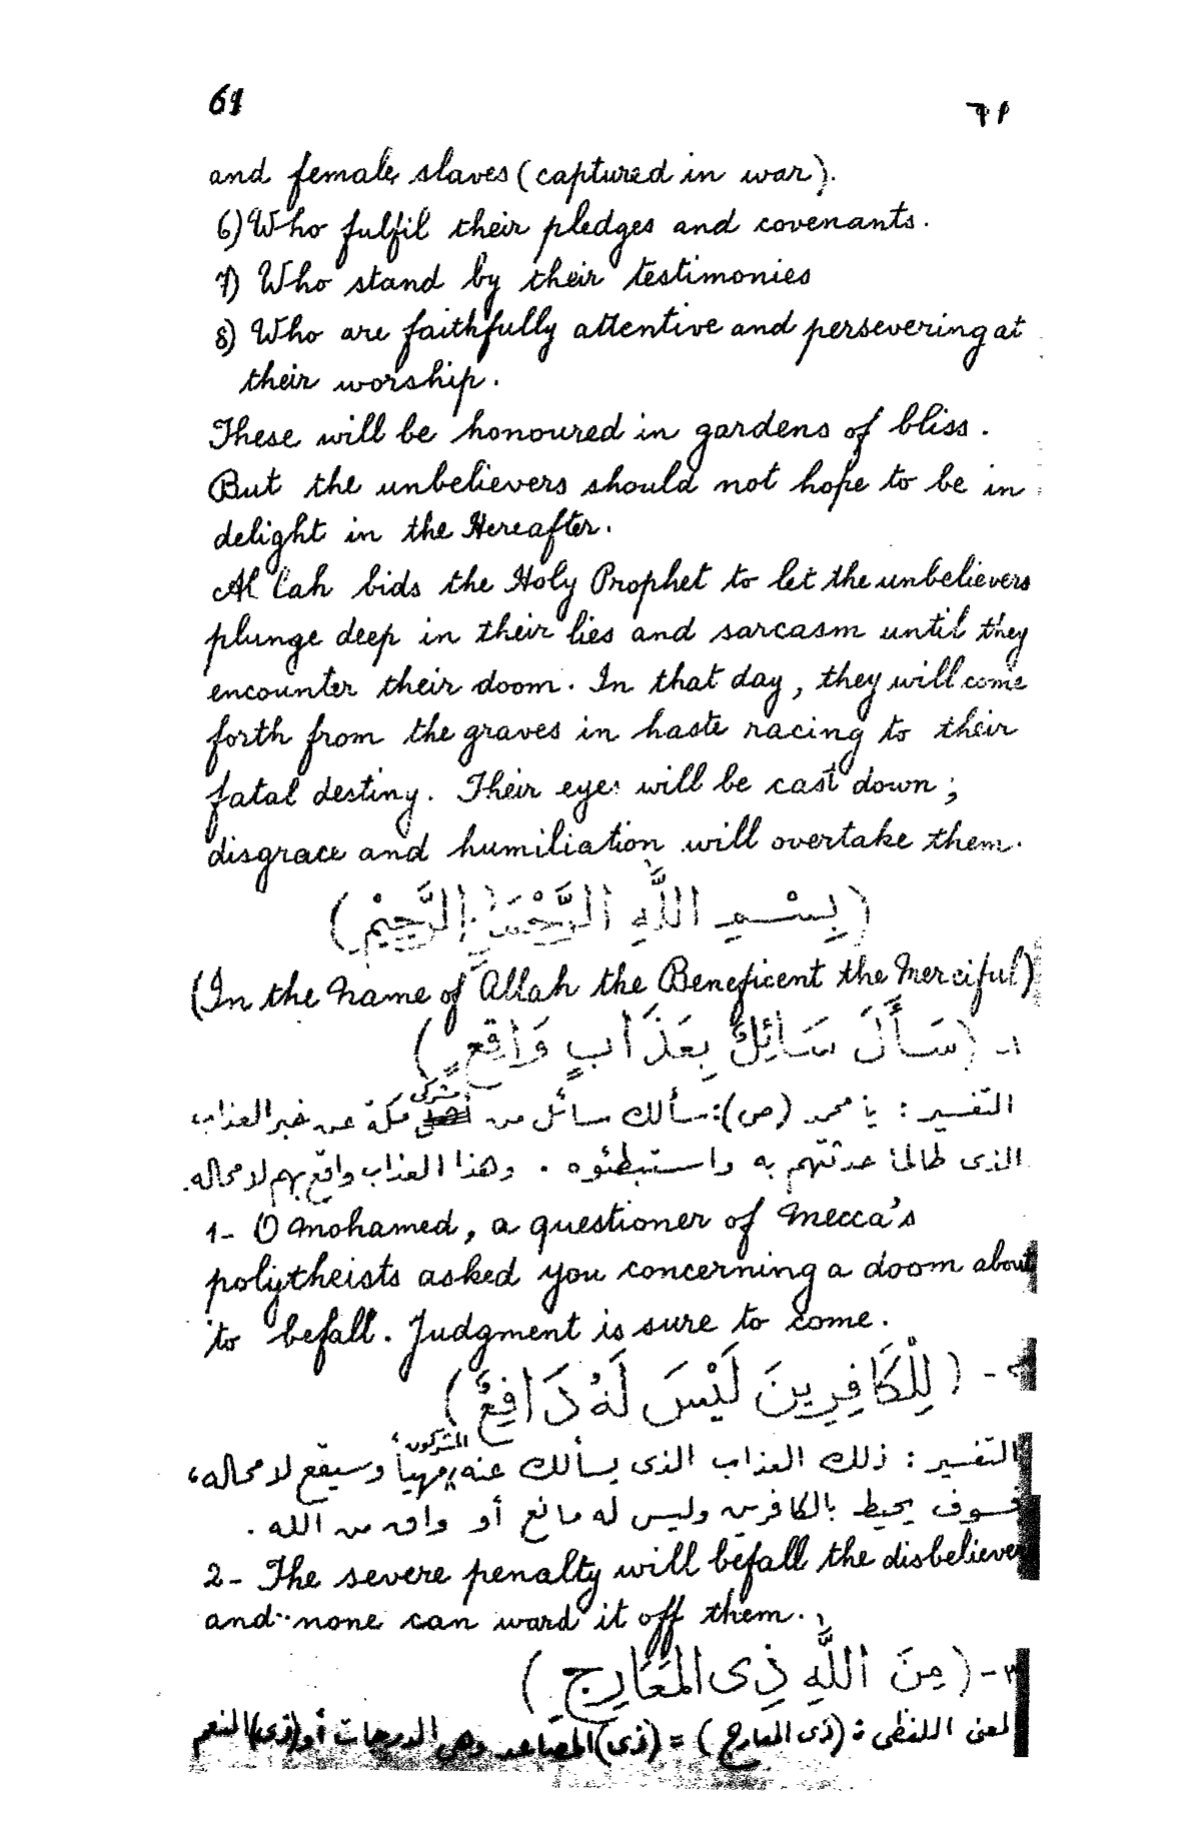 61 ٦١
and female slaves (captured in war).
6) Who fulfil their pledges and covenants.
7) Who stand by their testimonies
8) Who are faithfully attentive and persevering at
their worship.
These will be honoured in gardens of bliss.
But the unbelievers should not hope to be in
delight in the Hereafter.
Allah bids the Holy Prophet to let the unbelievers
plunge deep in their lies and sarcasm until they
encounter their doom. In that day, they will come
forth from the graves in haste racing to their
fatal destiny. Their eyes will be cast down;
disgrace and humiliation will overtake them.
(بِسْمِ اللَّهِ الرَّحْمَنِ الرَّحِيْمِ)
(In the Name of Allah the Beneficent the Merciful)
١- (سَأَلَ سَائِلٌ بِعَذَابٍ وَاقِعٍ)
التفسير: يا محمد (ص): سألك سائل من مشركى مكة عن خبر العذاب
الذى طالما حدثتهم به واستبطئوه. وهذا العذاب واقع بهم لا محاله.
1- O Mohamed, a questioner of Mecca's
polytheists asked you concerning a doom about
to befall. Judgment is sure to come.
٢- (لِلْكَافِرِينَ لَيْسَ لَهُ دَافِعٌ)
التفسير: ذلك العذاب الذى يسألك عنه المشركون، مهيأ وسيقع لا محاله،
فسوف يحيط بالكافرين وليس له مانع أو واق من الله.
2- The severe penalty will befall the disbelievers
and none can ward it off them.
٣- (مِنَ اللَّهِ ذِى المَعَارِجِ)
المعنى اللفظى: (ذى المعارج) = (ذى) المصاعد وهى الدرجات أو (ذى) النعم